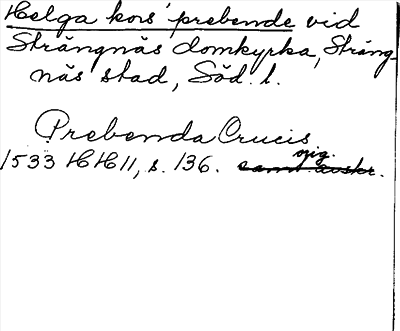 Helga kors' prebende vid
Strängnäs domkyrka, Sträng-
näs stad, Söd. l.
Prebenda Crucis
orig.
1533 HH II, s. 136. samt. avskr.